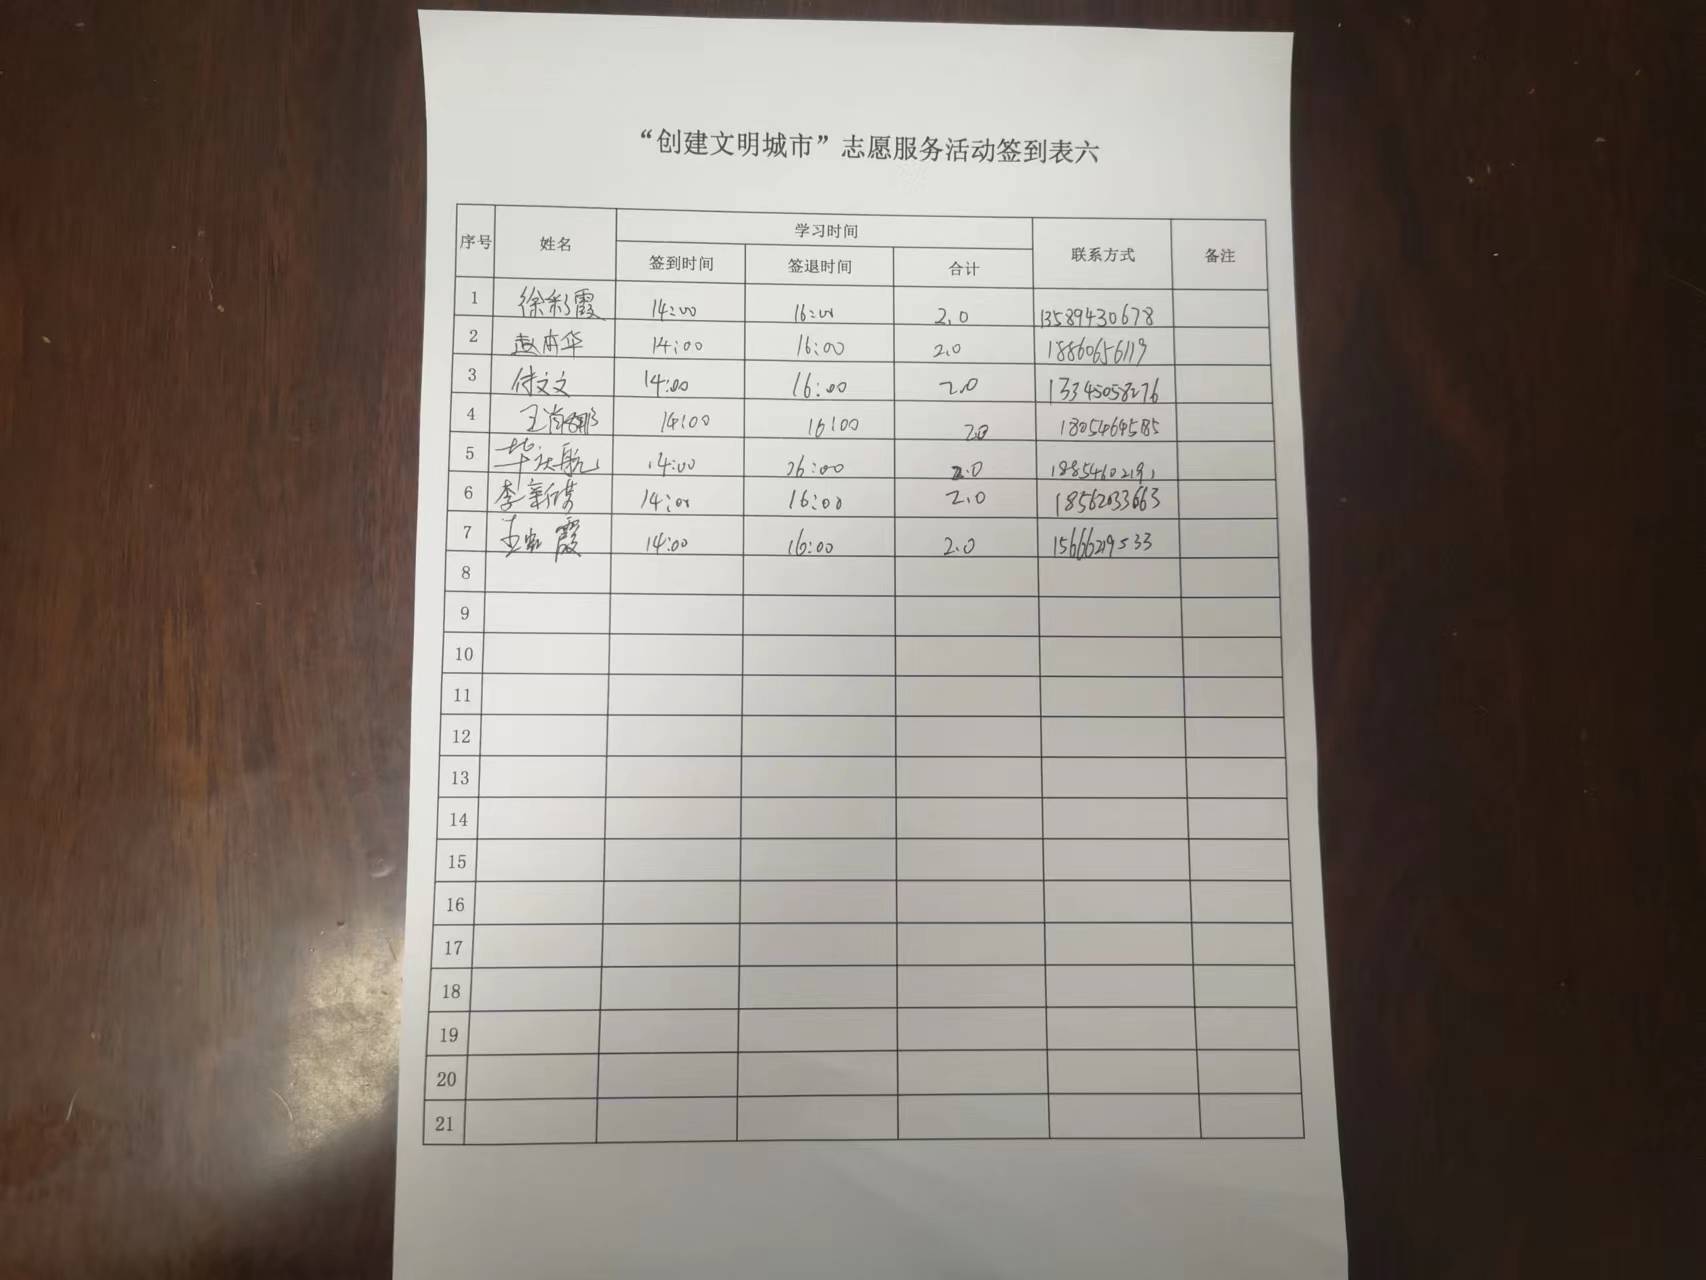 “创建文明城市”志愿服务活动签到表六
序号 姓名 学习时间 联系方式 备注
签到时间 签退时间 合计
1 徐彩霞 14:00 16:00 2.0 13589430678
2 赵本华 14:00 16:00 2.0 18860656119
3 付文文 14:00 16:00 2.0 13345058276
4 王肖鹏 14:00 16:00 2.0
5 14:00 16:00 2.0
6 李新 14:00 16:00 2.0 18562033663
7 霞 14:00 16:00 2.0 15666219533
8
9
10
11
12
13
14
15
16
17
18
19
20
21